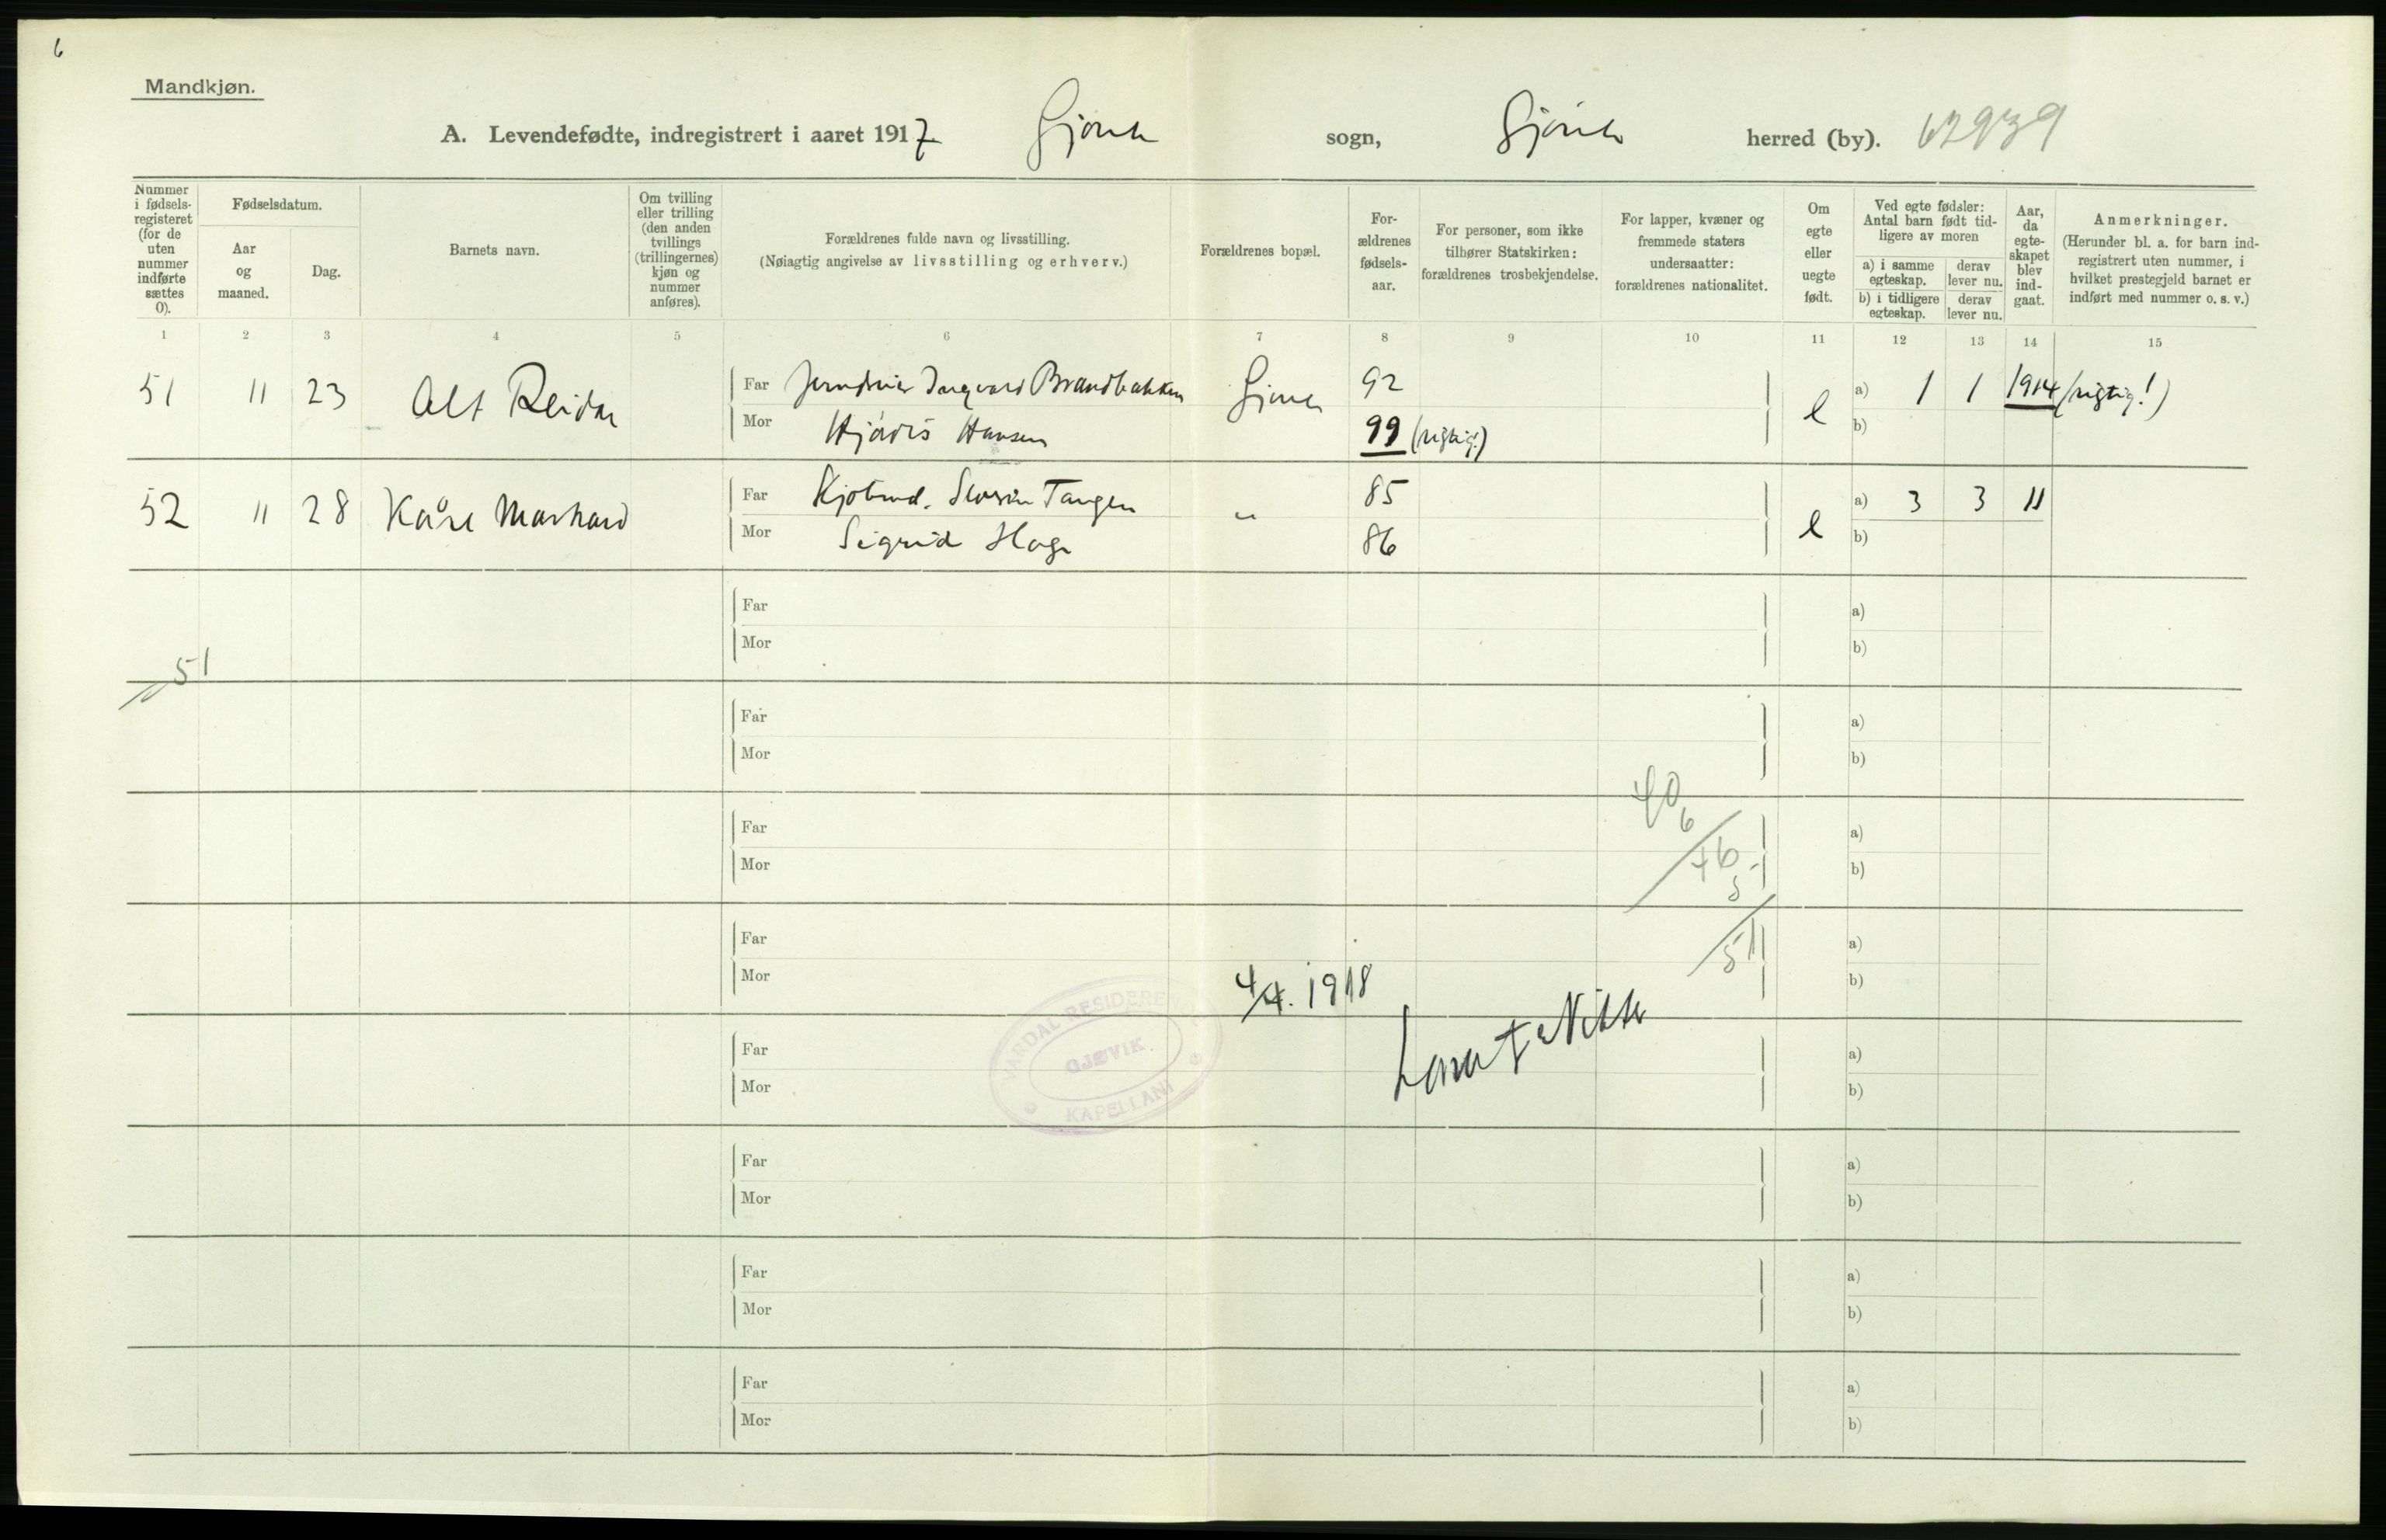 6
Mandkjøn.
A. Levendefødte, indregistrert i aaret 1917 Gjøvik sogn, Gjøvik herred (by). 62939
Nummer i fødsels-registeret (for de uten nummer indførte sættes 0).
Fødselsdatum.
Aar og maaned.
Dag.
Barnets navn.
Om tvilling eller trilling (den anden tvillings (trillingernes) kjøn og nummer anføres).
Forældrenes fulde navn og livsstilling.
(Nøiagtig angivelse av livsstilling og erhverv.)
Forældrenes bopæl.
For-ældrenes fødsels-aar.
For personer, som ikke tilhører Statskirken: forældrenes trosbekjendelse.
For lapper, kvæner og fremmede staters undersaatter: forældrenes nationalitet.
Om egte eller uegte født.
Ved egte fødsler: Antal barn født tid-ligere av moren
a) i samme egteskap.
derav lever nu.
b) i tidligere egteskap.
derav lever nu.
Aar, da egte-skapet blev ind-gaat.
Anmerkninger.
(Herunder bl. a. for barn ind-registrert uten nummer, i hvilket prestegjeld barnet er indført med nummer o. s. v.)
1 2 3 4 5 6 7 8 9 10 11 12 13 14 15
51 11 23 Alf Reidar Far Ingvard Brandbakken Gjøvik 92 e a) 1 1 1914 (rigtig!)
Mor Hjørdis Hansen 99 (rigtig!) b)
52 11 28 Kåre Far Kjøbmd. Tangen " 85 e a) 3 3 11
Mor Sigrid Hage 86 b)
Far a)
Mor b)
51
Far a)
Mor b)
40
6
Far a)
46
Mor b)
5
Far a)
51
Mor b)
4/4. 1918
VARDAL RESIDERENDE KAPELLANI
GJØVIK.
Far a)
Mor b)
Far a)
Mor b)
Far a)
Mor b)
Far a)
Mor b)